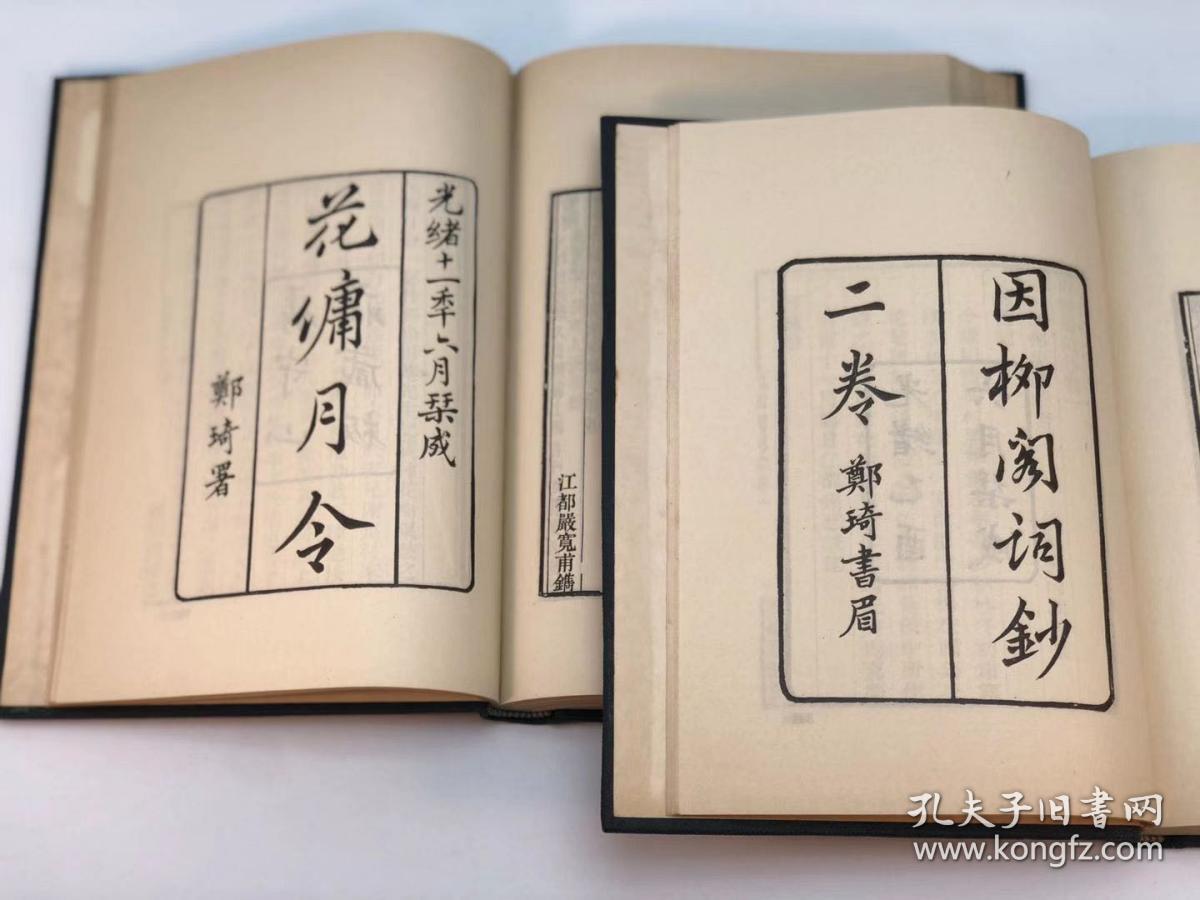 光緒十一季六月栞成
花傭月令
鄭琦署
江都嚴寬甫鐫
因柳阁詞鈔
二卷
鄭琦書眉
孔夫子旧书网
www.kongfz.com